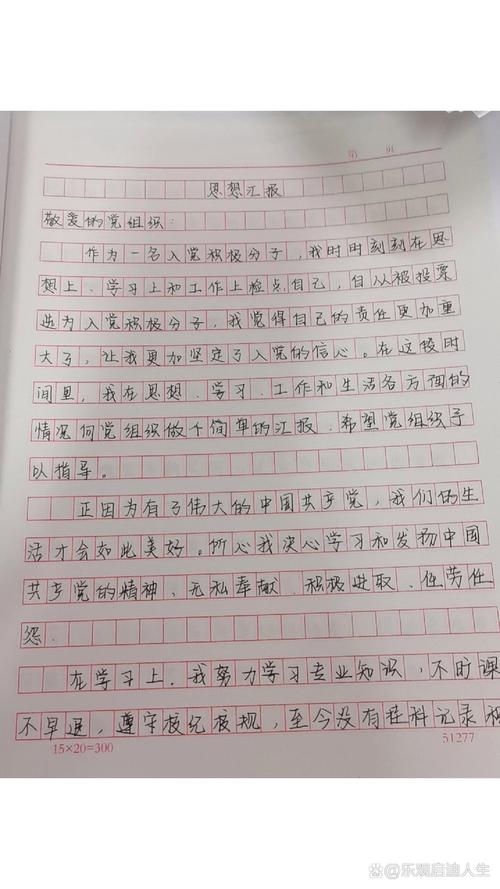 第 页
思想汇报
敬爱的党组织：
作为一名入党积极分子，我时时刻刻在思
想上、学习上和工作上检点自己，自从被投票
选为入党积极分子，我觉得自己的责任更加重
大了，让我更加坚定了入党的信心。在这段时
间里，我在思想、学习、工作和生活各方面的
情况向党组织做个简单的汇报，希望党组织予
以指导。
正因为有了伟大的中国共产党，我们的生
活才会如此美好。所以我决心学习和发扬中国
共产党的精神、无私奉献、积极进取、任劳任
怨。
在学习上，我努力学习专业知识，不旷课
不早退，遵守校纪校规，至今没有挂科记录和
15×20=300
51277
@乐观启迪人生